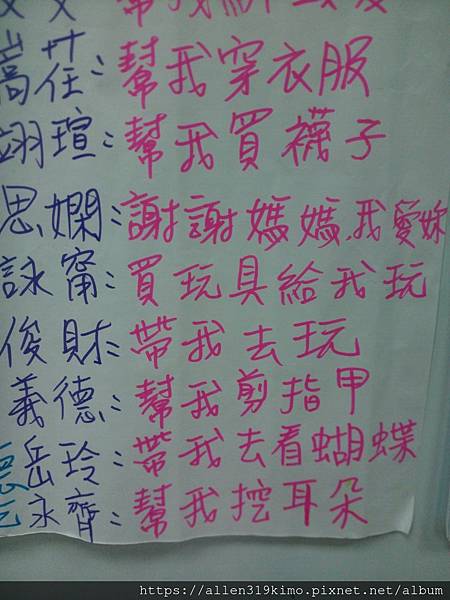 嵩荏：幫我穿衣服
翊瑄：幫我買襪子
思嫻：謝謝媽媽，我愛妳
詠甯：買玩具給我玩
俊財：帶我去玩
義德：幫我剪指甲
岳玲：帶我去看蝴蝶
永齊：幫我挖耳朵
https://allen319kimo.pixnet.net/album